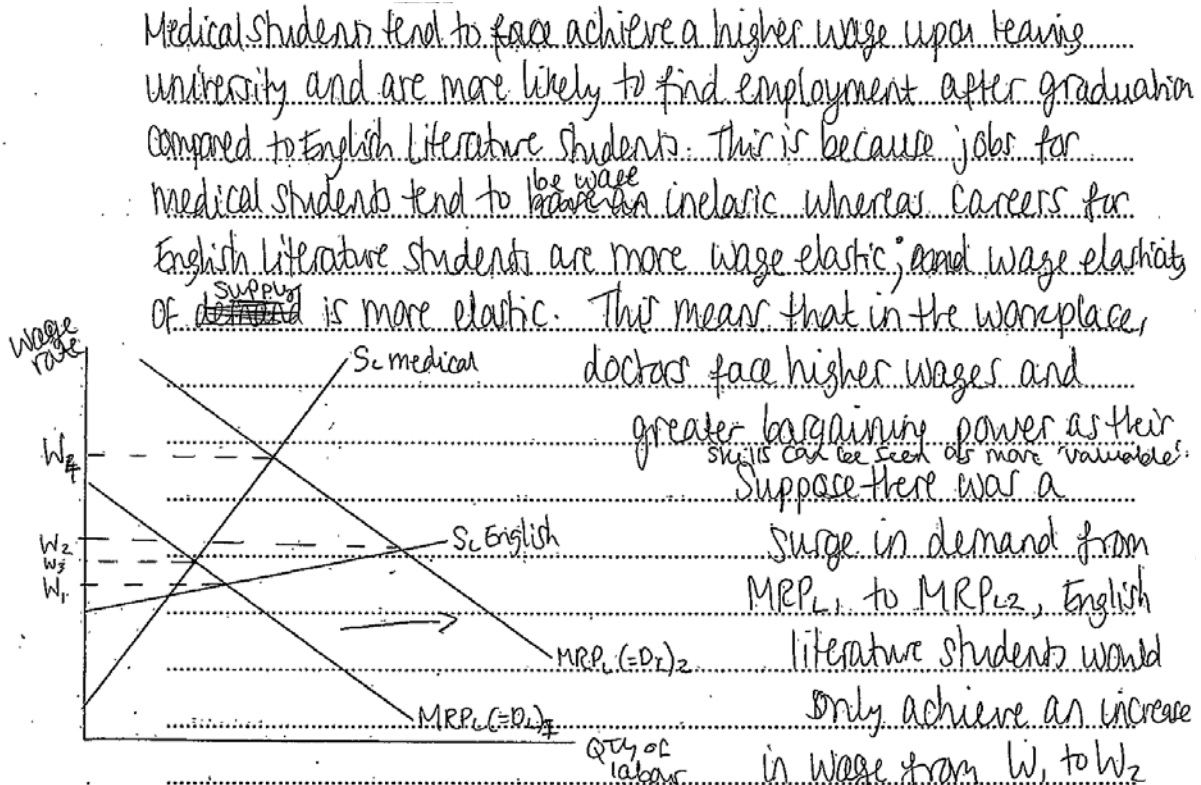 Medical students tend to face achieve a higher wage upon leaving
university and are more likely to find employment after graduation
compared to English Literature students. This is because jobs for
medical students tend to be wage inelasic whereas careers for
English Literature students are more wage elastic; and wage elasticity
of supply is more elastic. This means that in the workplace,
doctors face higher wages and
greater bargaining power as their
skills can be seen as more 'valuable'.
Suppose there was a
surge in demand from
MRPL1 to MRPL2, English
literature students would
only achieve an increase
in wage from W1 to W2
wage rate
SL medical
W4
W2
W3
W1
SL English
MRPL(=DL)2
MRPL(=DL)1
QTy of labour